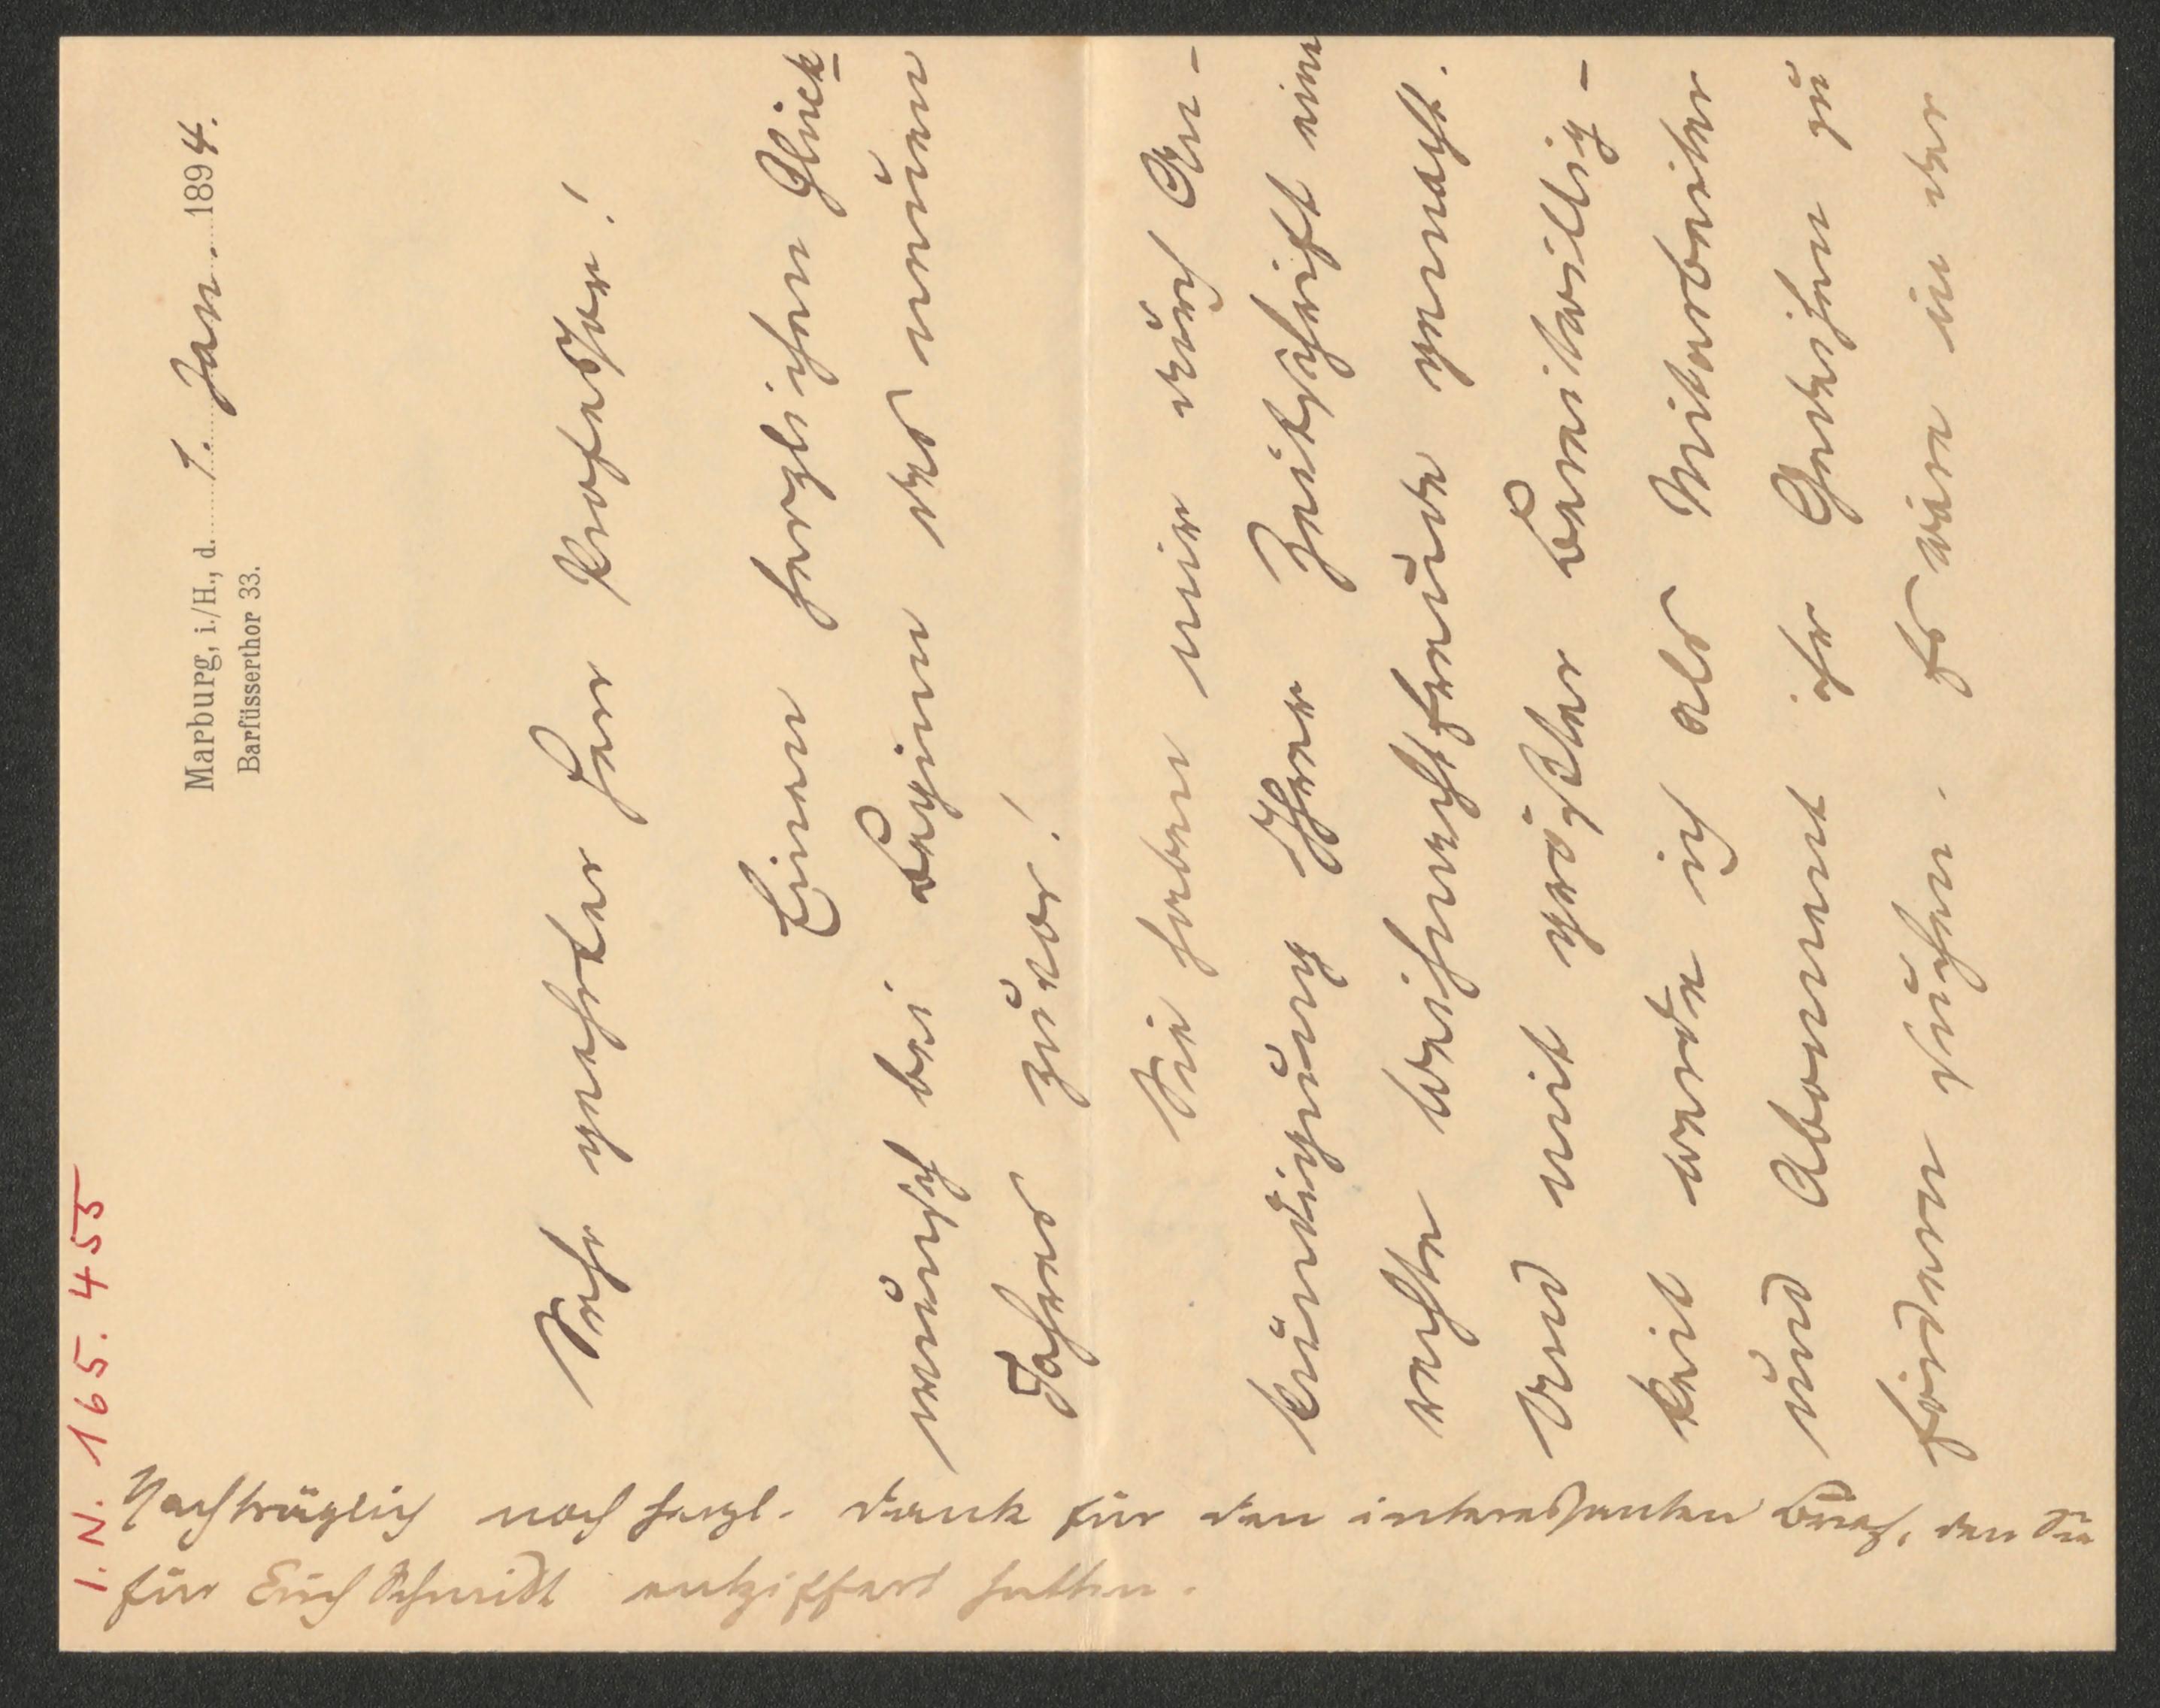 I. N. 165.455
Marburg, i./H., d. 1. Jan. 1894.
Barfüsserthor 33.
Sehr geehrter Herr Professor!
Einen herzlichen Glück-
wunsch bei Beginn des neuen
Jahres zuvor!
Sie haben mir durch An-
kündigung Ihrer Zeitschrift eine
rechte Weihnachtsfreude gemacht.
Und mit größter Bereitwillig-
keit werde ich als Mitarbeiter
und Abonnent ihr Gedeihen zu
fördern suchen. Es wäre in der
Nachträglich noch herzl. Dank für den interessanten Brief, den Sie
für Erich Schmidt entziffert hatten.